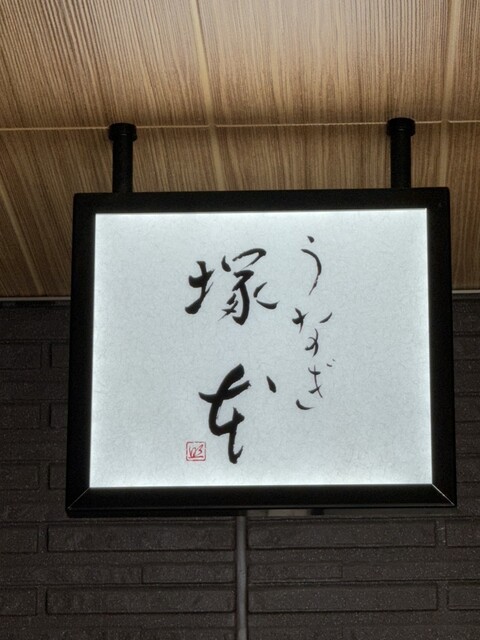 うなぎ
塚本